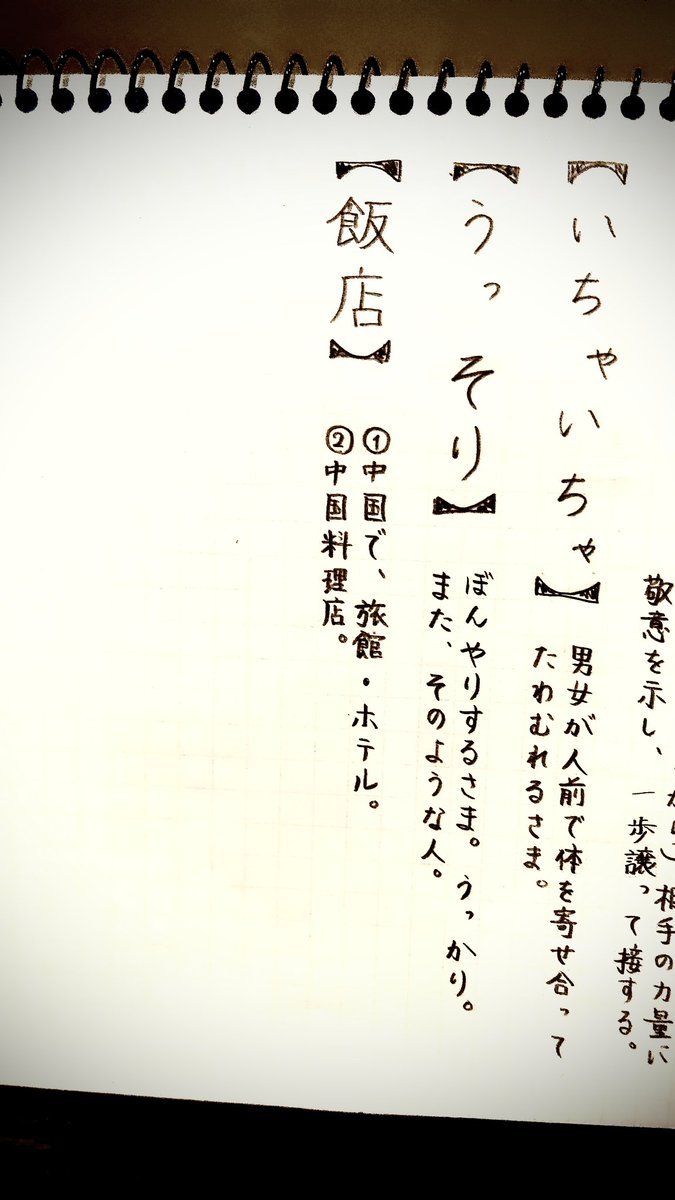 相手の力量に
敬意を示し、一歩譲って接する。
【いちゃいちゃ】
男女が人前で体を寄せ合って
たわむれるさま。
【うっそり】
ぼんやりするさま。うっかり。
また、そのような人。
【飯店】
①中国で、旅館・ホテル。
②中国料理店。